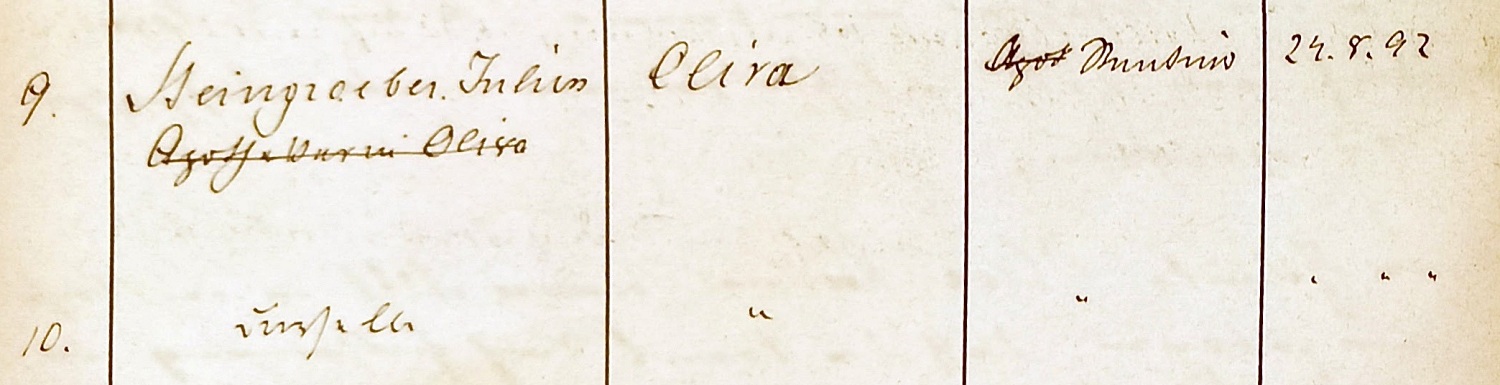 9. Steingraeber. Julius Oliva Apot 24.8.92
Apotheker in Oliva
10. derselbe " " " " "